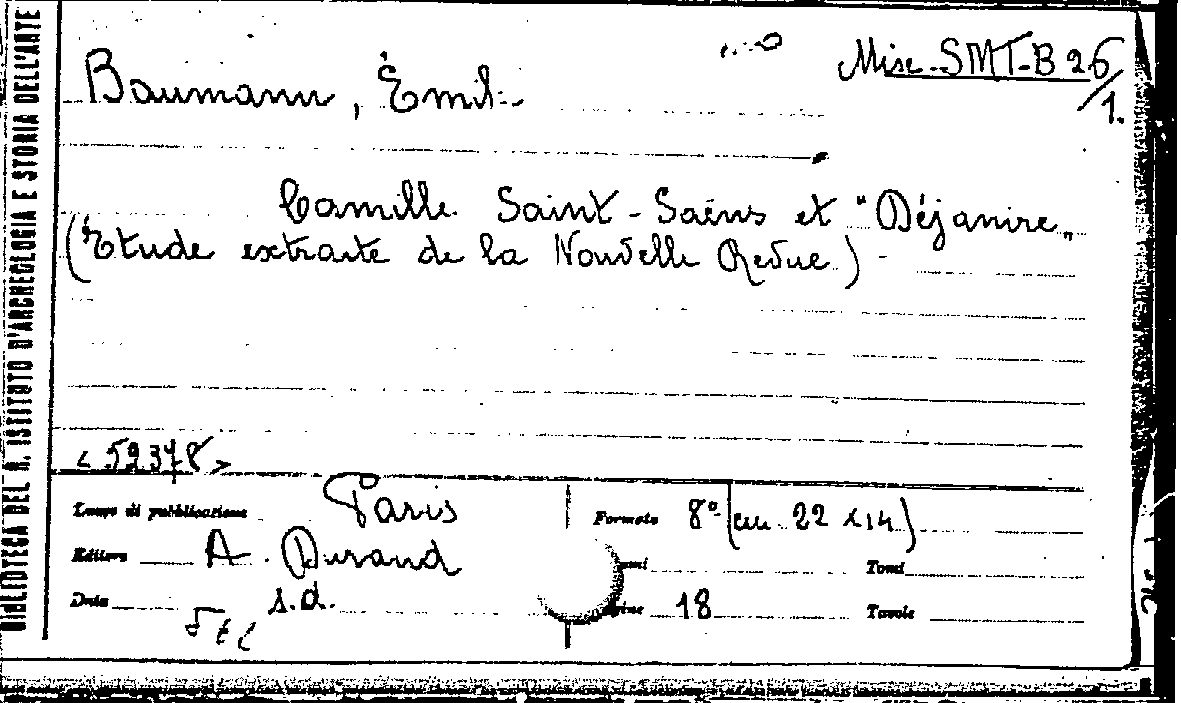 BIBLIOTECA DEL R. ISTITUTO D'ARCHEOLOGIA E STORIA DELL'ARTE
Misc. SMT-B 26/1.
Baumann, Emil
Camille Saint-Saëns et "Déjanire„
(Etude extraite de la Nouvelle Revue)
<52378>
Luogo di pubblicazione Paris
Formato 8° (cm 22 x 14)
Editore A. Durand
Tomi
Data s.d.
18
Tavole